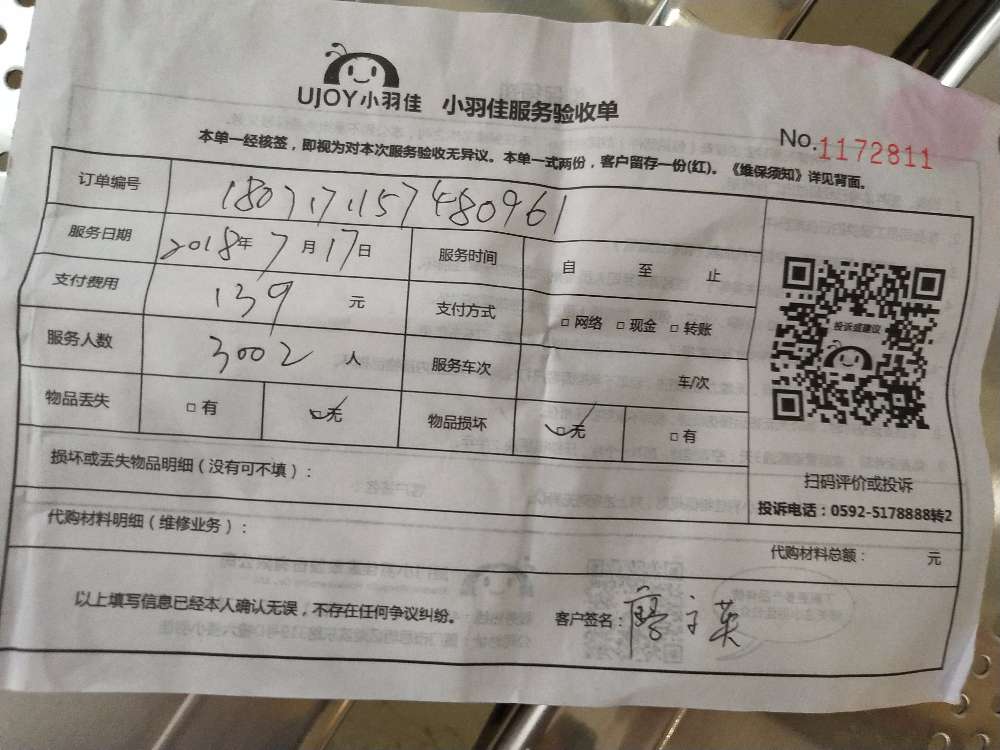 UJOY小羽佳 小羽佳服务验收单
No.1172811
本单一经核签，即视为对本次服务验收无异议。本单一式两份，客户留存一份(红)。《维保须知》详见背面。
订单编号 1807171157480961
服务日期 2018年7月17日 服务时间 自 至 止
支付费用 139 元 支付方式 □网络 □现金 □转账
服务人数 3002 人 服务车次 车/次
物品丢失 □有 ☑无 物品损坏 ☑无 □有
投诉或建议
扫码评价或投诉
投诉电话：0592-5178888转2
损坏或丢失物品明细（没有可不填）：
代购材料明细（维修业务）： 代购材料总额： 元
以上填写信息已经本人确认无误，不存在任何争议纠纷。 客户签名：